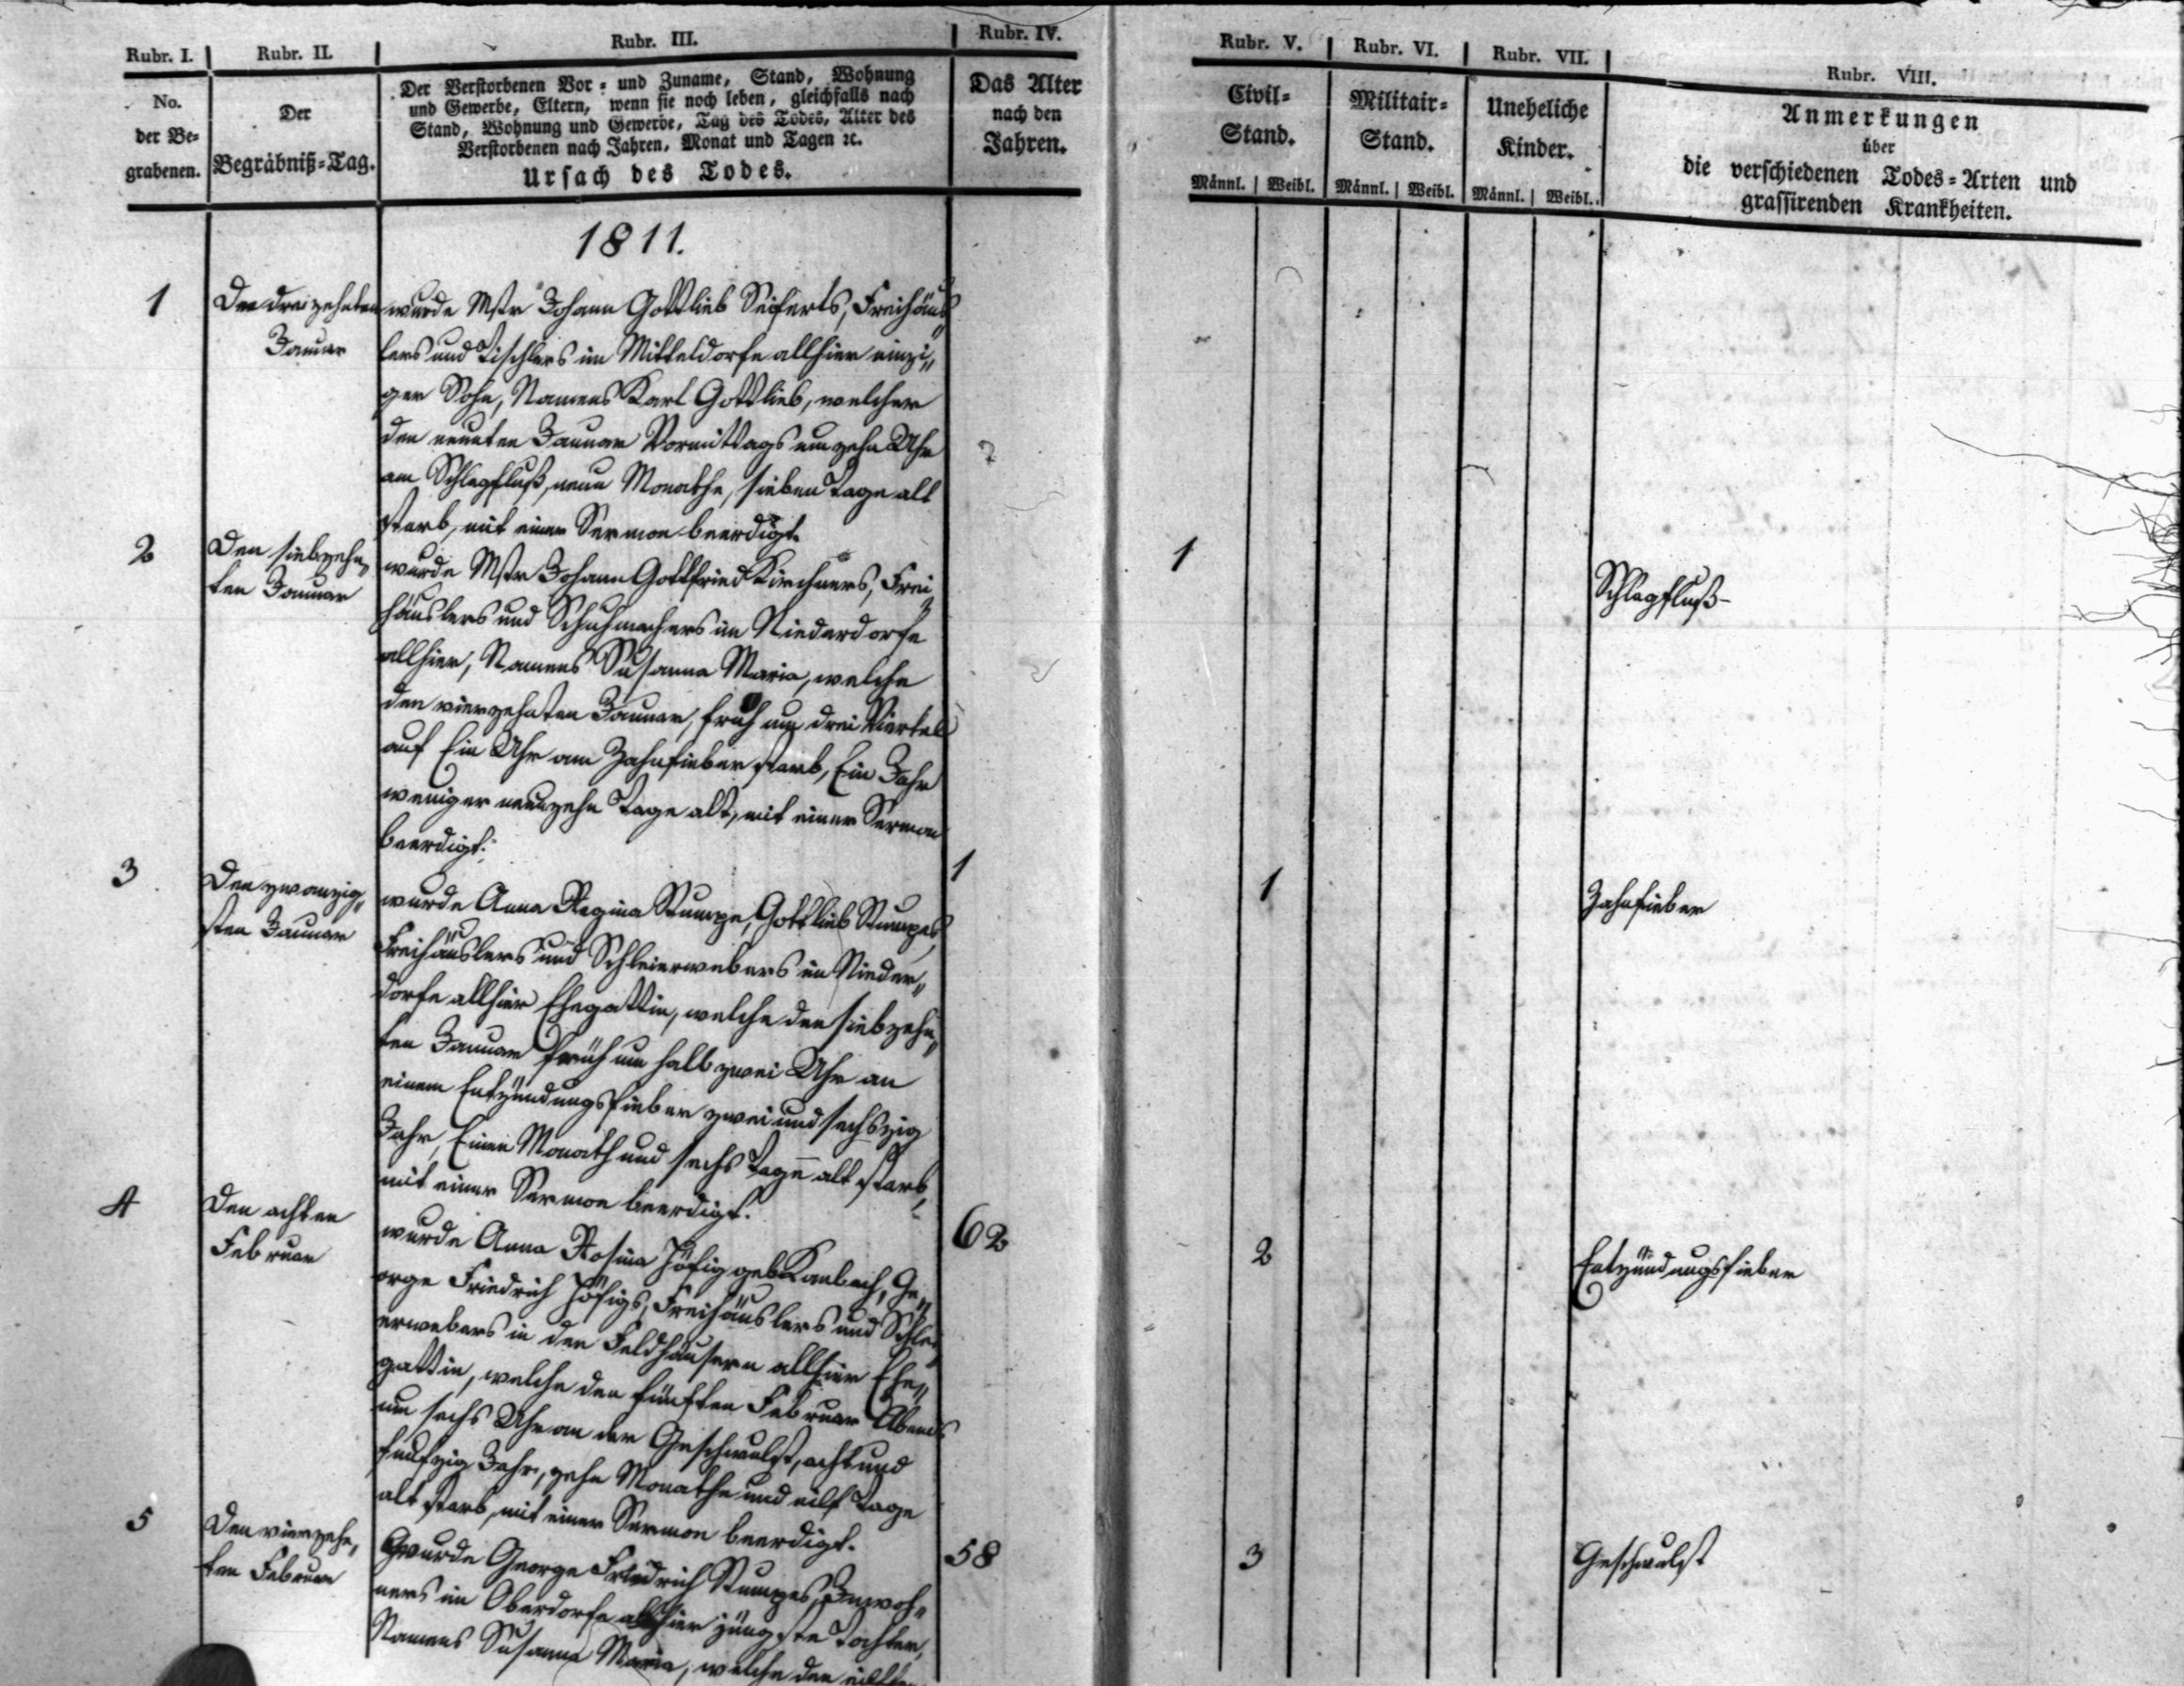 Rubr. I.
Rubr. II.
Rubr. III.
Rubr. IV.
No.
der Be-
grabenen.
Der
Begräbniß-Tag.
Der Verstorbenen Vor- und Zuname, Stand, Wohnung
und Gewerbe, Eltern, wenn sie noch leben, gleichfalls nach
Stand, Wohnung und Gewerbe, Tag des Todes, Alter des
Verstorbenen nach Jahren, Monat und Tagen ꝛc.
Ursach des Todes.
Das Alter
nach den
Jahren.
1811.
1
Den dreizehnten
Januar
wurde Mstr Johann Gottlieb Seiferts, Freihäus„
lers und Tischlers im Mitteldorfe allhier einzi„
ger Sohn, Namens Karl Gottlieb, welcher
den neunten Januar Vormittags um zehn Uhr
am Schlagfluß, neun Monathe, sieben Tage alt
starb, mit einer Sermon beerdigt.
2
Den siebzehn„
ten Januar
wurde Mstr Johann Gottfried Kirchners, Frei„
häuslers und Schuhmachers im Niederdorfe
allhier, Namens Susanna Maria, welche
den vierzehnten Januar, früh um drei Viertel
auf Ein Uhr am Zahnfieber starb, Ein Jahr
weniger neunzehn Tage alt, mit einer Sermon
beerdigt.
1
3
Den zwanzig„
sten Januar
wurde Anna Regina Stumpe, Gottlieb Stumpes
Freihäuslers und Schleierwebers im Nieder„
dorfe allhier Ehegattin, welche den siebzehn„
ten Januar früh um halb zwei Uhr an
einem Entzündungsfieber zwei und sechszig
Jahr, Einen Monath und sechs Tage alt starb,
mit einer Sermon beerdigt.
62
4
Den achten
Februar
wurde Anna Rosina Höfig geb. Kambach, Ge„
orge Friedrich Höfigs, Freihäuslers und Schlei„
erwebers in den Feldhäusern allhier Ehe„
gattin, welche den fünften Februar Abends
um sechs Uhr an der Geschwulst, acht und
funfzig Jahr, zehn Monathe und eilf Tage
alt starb, mit einer Sermon beerdigt.
58
5
Den vierzehn„
ten Februar
wurde George Friedrich Stumpes, Inwoh„
ners im Oberdorfe allhier jüngste Tochter,
Namens Susanna Maria, welche den eilften
Rubr. V.
Rubr. VI.
Rubr. VII.
Rubr. VIII.
Civil-
Stand.
Militair-
Stand.
Uneheliche
Kinder.
Männl. | Weibl.
Männl. | Weibl.
Männl. | Weibl.
Anmerkungen
über
die verschiedenen Todes-Arten und
grassirenden Krankheiten.
1
Schlagfluß
1
Zahnfieber
2
Entzündungsfieber
3
Geschwulst